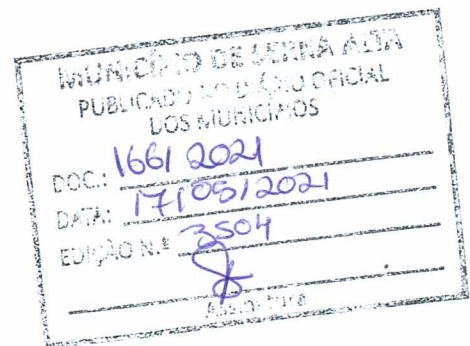 MUNICÍPIO DE SERRA ALTA
PUBLICADO NO DIÁRIO OFICIAL
DOS MUNICÍPIOS
DOC.: 1661 2021
DATA: 17/05/2021
EDIÇÃO N.º 3504
Assinatura